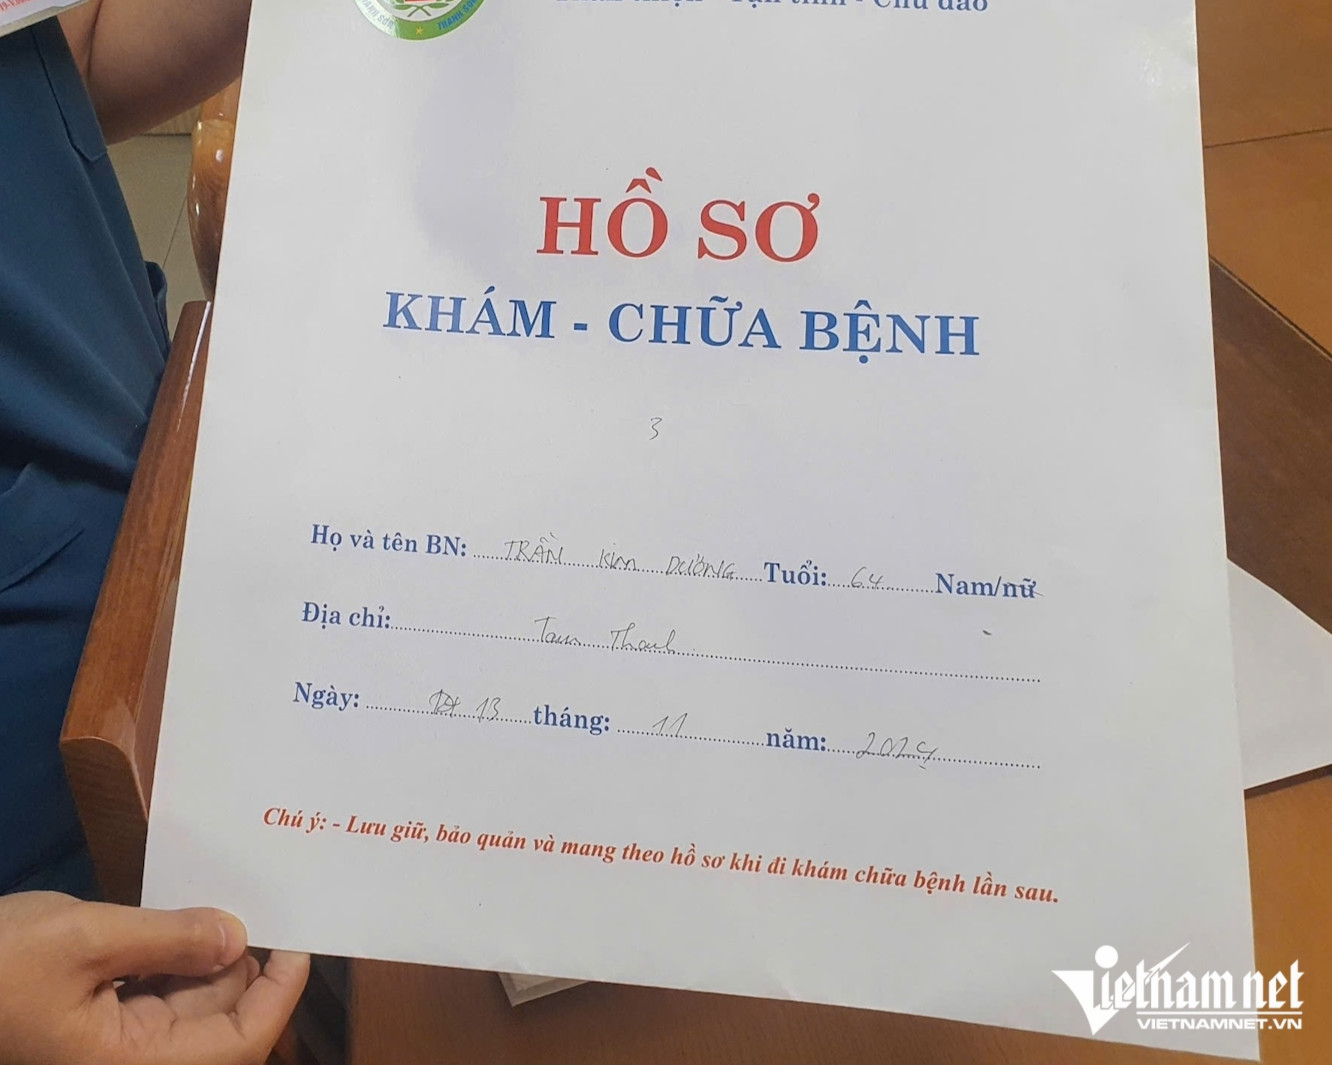 Thân thiện - Tận tình - Chu đáo
THANH SƠN
HỒ SƠ
KHÁM - CHỮA BỆNH
3
Họ và tên BN: TRẦN Kim DƯƠNG Tuổi: 64 Nam/nữ
Địa chỉ: Tam Thanh
Ngày: 13 tháng: 11 năm: 2024
Chú ý: - Lưu giữ, bảo quản và mang theo hồ sơ khi đi khám chữa bệnh lần sau.
Vietnamnet
VIETNAMNET.VN